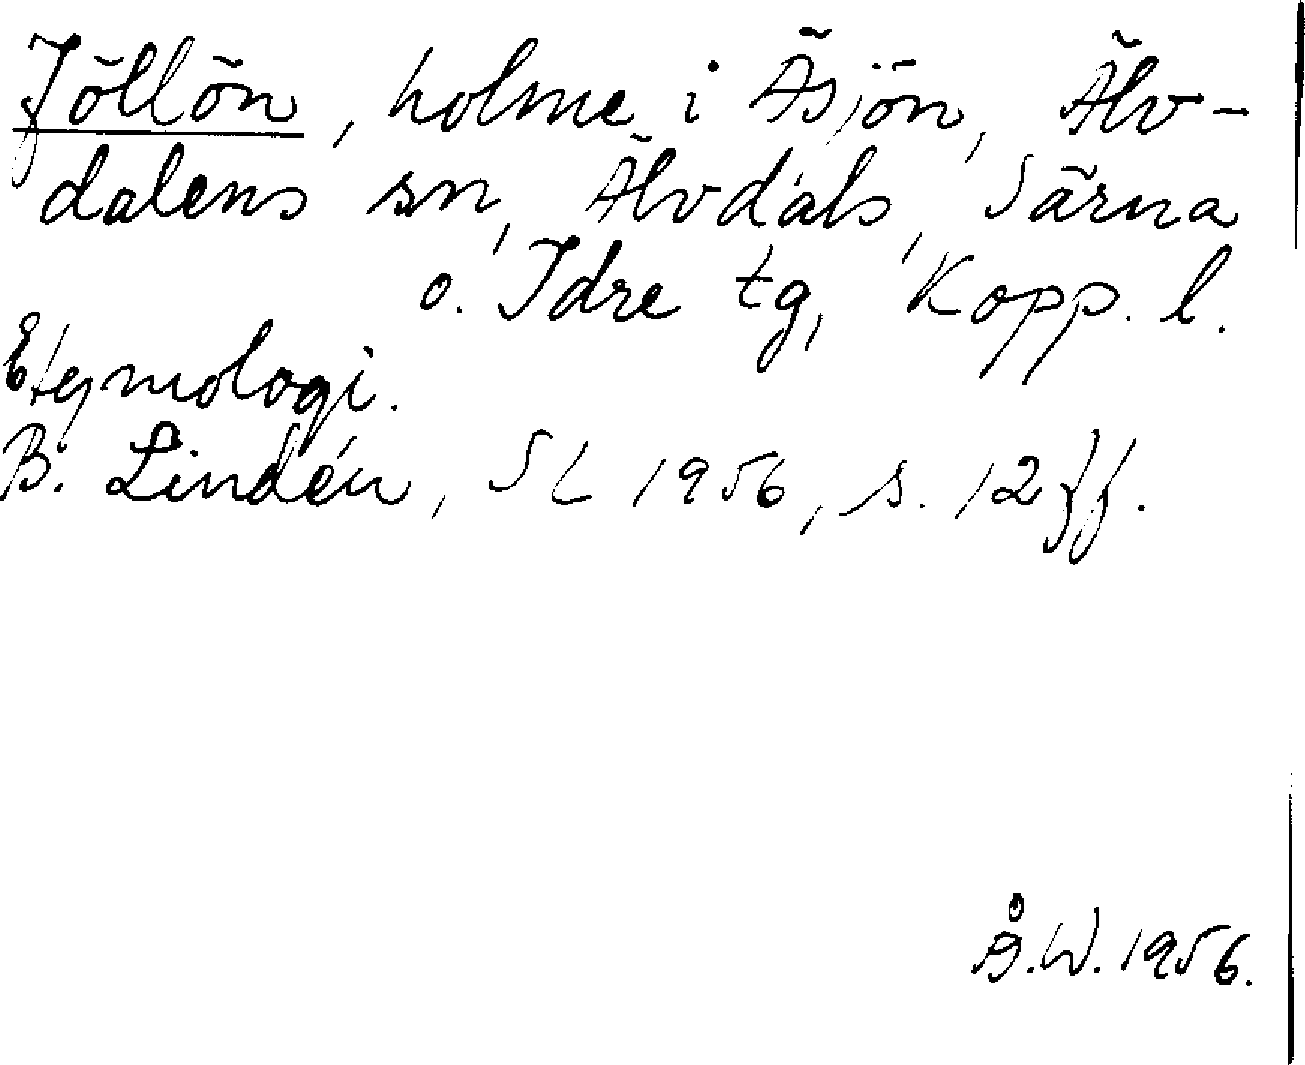 Jöllön, holme i Äsjön, Älv-
dalens sn, Älvdals, Särna
o. Idre tg, Kopp. l.
Etymologi.
B. Lindén, SL 1956, s. 12 ff.
Å.W. 1956.